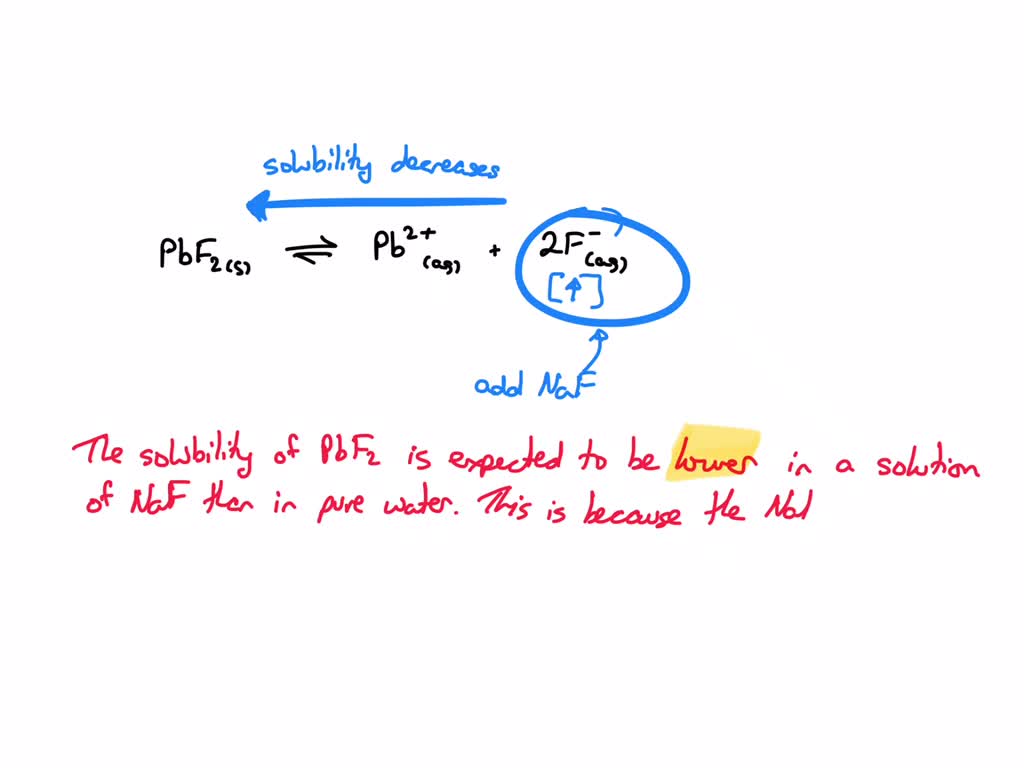 solubility decreases
PbF₂(s) ⇌ Pb²⁺(aq) + 2F⁻(aq)
[↑]
add NaF
The solubility of PbF₂ is expected to be lower in a solution
of NaF than in pure water. This is because the Nal